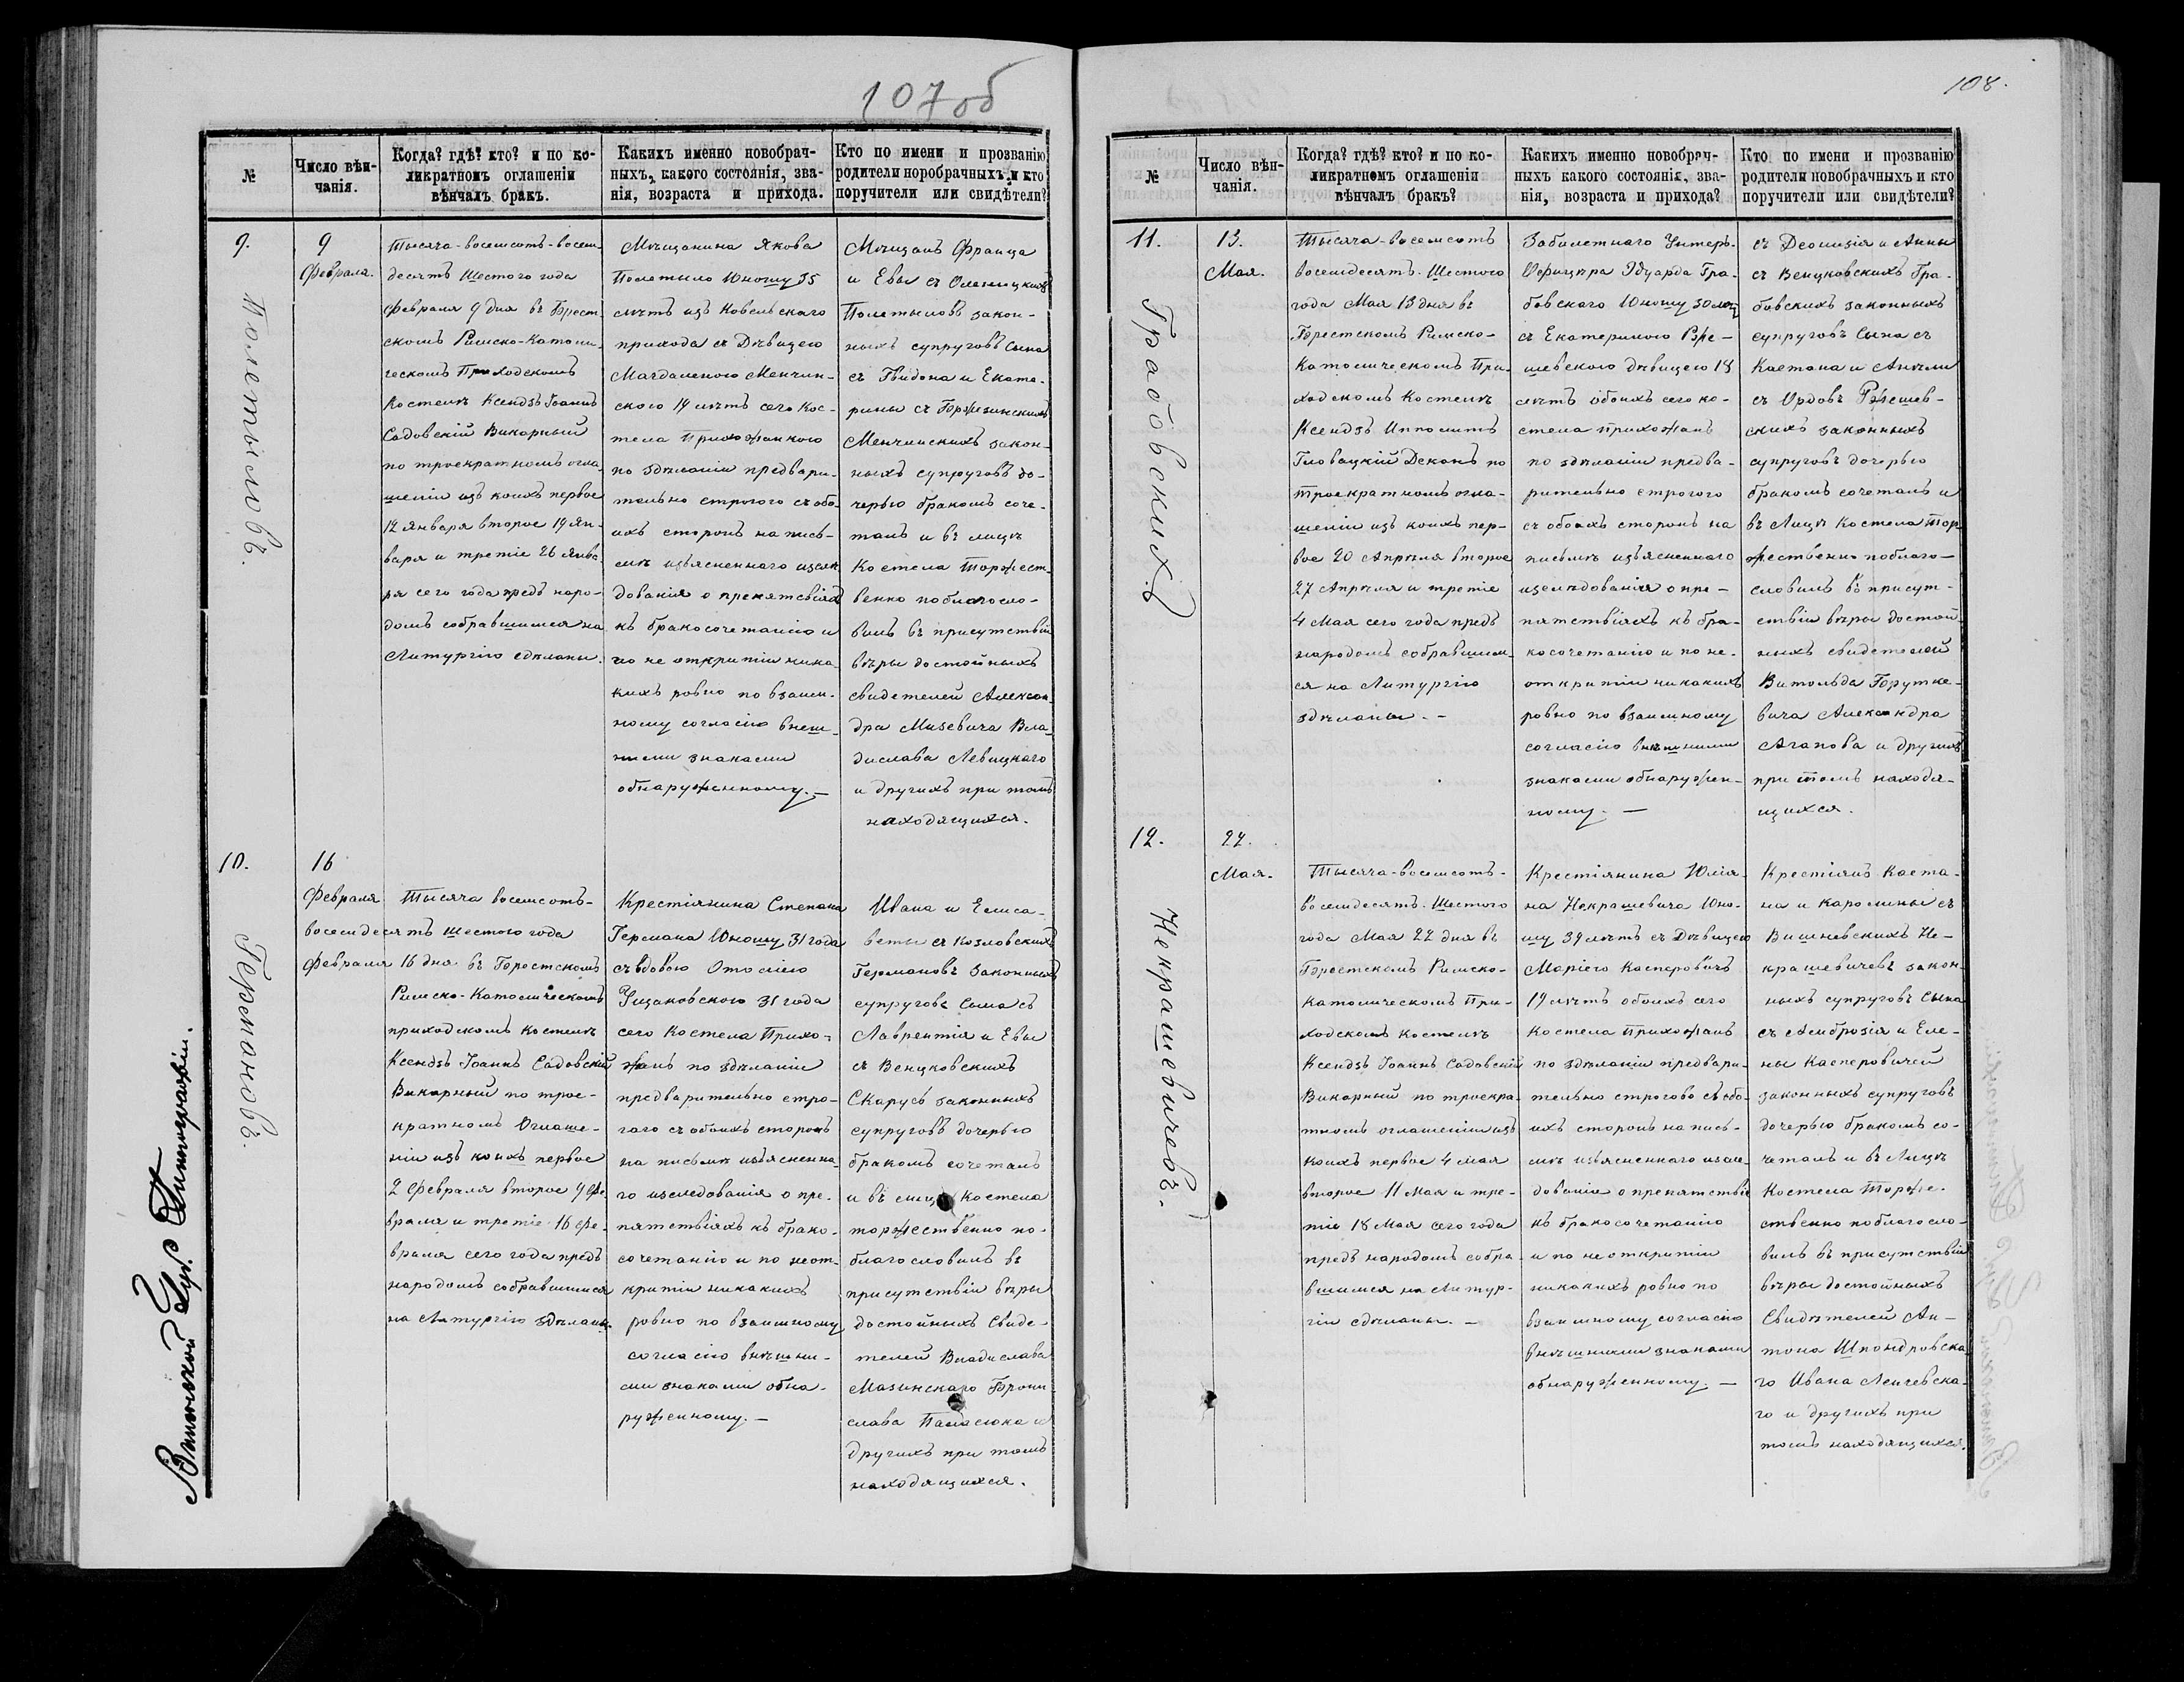 107об
№
Число вѣн-
чанія.
Когда? гдѣ? кто? и по ко-
ликратномъ оглашеніи
вѣнчалъ бракъ.
Какихъ именно новобрач-
ныхъ, какого состоянія, зва-
нія, возраста и прихода.
Кто по имени и прозванію
родители норобрачныхъ и кто
поручители или свидѣтели?
9.
Полетыловъ.
9
Февраля.
Тысяча-восемсотъ-восем-
десятъ Шестого года
Февраля 9 дня въ Брест-
скомъ Римско-Католи-
ческомъ Приходскомъ
Костелѣ Ксендзъ Іоаннъ
Садовскій Викарный
по троекратномъ огла-
шеніи изъ коихъ первое
12 Января второе 19 Ян-
варя и третіе 26 Янва
ря сего года предъ наро-
домъ собравшимся на
Литургію сдѣланы.
Мѣщанина Якова
Полетыло Юношу 35
лѣтъ изъ Ковельскаго
прихода съ Дѣвицею
Магдаленою Менчин-
ского 19 лѣтъ сего Кос-
тела Прихожанкою
по здѣланіи предвари-
тельно строгого съ обо-
ихъ сторонъ на пись-
мѣ изъясненнаго изслѣ
дованія о препятсвіяхъ
къ бракосочетанію и
по не открытіи ника-
кихъ ровно по взаим-
ному согласію внѣш-
ними знаками
обнаруженному.—
Мѣщанъ Франца
и Евы съ Оленицкихъ
Полетыловъ закон-
ныхъ супруговъ Сына
съ Гвидона и Екате-
рины съ Бржезинскихъ
Менчинскихъ закон-
ныхъ супруговъ до-
черью бракомъ соче-
талъ и въ лицѣ
Костела Торжест-
венно поблагосло-
вилъ въ присутствіи
вѣры достойныхъ
свидетелей Алексан-
дра Мизевича Вла-
дислава Левицкаго
и другихъ при томъ
находящихся.
10.
Германовъ.
16
Февраля
Тысяча восемсотъ-
восемдесятъ шестого года
Февраля 16 дня въ Брестскомъ
Римско-Католическомъ
приходскомъ Костелѣ
Ксендзъ Іоаннъ Садовскій
Викарный по трое-
кратномъ Оглаше-
ніи изъ коихъ первое
2 Февраля второе 9 Фе-
враля и третіе 16 Фе-
враля сего года предъ
народомъ собравшимся
на Литургію здѣланы.
Крестіянина Степана
Германа Юношу 31 года
съ вдовою Отолію
31 года
сего Костела Прихо-
жанъ по здѣланіи
предварительно стро-
гого съ обоихъ сторонъ
на письмѣ изъясненна-
го изследованія о пре-
пятствіяхъ къ брако-
сочетанію и по неот-
крытіи никакихъ
ровно по взаимному
согласію внѣшни-
ми знаками обна-
руженному.—
Ивана и Елиса-
веты съ Козловскихъ
Германовъ Законныхъ
супруговъ Сына съ
Лаврентія и Евы
съ Венцковскихъ
Скарусь законныхъ
супруговъ дочерью
бракомъ сочеталъ
и въ лицѣ Костела
торжественно по-
благословилъ въ
присутствіи вѣры
достойныхъ Свиде-
телей Владислава
Мазинскаро Брони-
слава Паласюка и
другихъ при томъ
находящихся.
Виленской Губ. Типографіи.
108.
№
Число вѣн-
чанія.
Когда? гдѣ? кто? и по ко-
ликратномъ оглашеніи
вѣнчалъ бракъ?
Какихъ именно новобрач-
ныхъ какого состоянія, зва-
нія, возраста и прихода?
Кто по имени и прозванію
родители новобрачныхъ и кто
поручители или свидѣтели?
11.
Грабовскихъ
13.
Мая.
Тысяча-восемсотъ
восемдесятъ-Шестого
года Мая 13 дня въ
Брестскомъ Римско-
Католическомъ При-
ходскомъ Костелѣ
Ксендзъ Ипполитъ
Гловацкій Деканъ по
троекратномъ огла-
шеніи изъ коихъ пер-
вое 20 Апрѣля второе
27 Апрѣля и третіе
4 Мая сего года предъ
народомъ собравшим-
ся на Литургію
здѣланы.-
Забилетнаго Унтеръ-
Офицѣра Эдуарда Гра-
бовского Юношу 30 лѣтъ
съ Екатериною Рже-
шевского дѣвицею 18
лѣтъ обоихъ сего ко-
стела прихожанъ
по здѣланіи предва-
рительно строгого
съ обоихъ сторонъ на
письмѣ изъясненнаго
изслѣдованія о пре-
пятствіяхъ къ бра-
косочетанію и по не-
открытіи никакихъ
ровно по взаимному
согласію внѣшними
знаками обнаружен-
ному.—
съ Деонизія и Анны
съ Венцковскихъ Гра-
бовскихъ законныхъ
супруговъ Сына съ
Каетана и Анѣли
съ Ордовъ Ржешев-
скихъ законныхъ
супруговъ дочерью
бракомъ сочеталъ и
въ Лицѣ Костела тор-
жественно поблаго-
словилъ въ присут-
ствіи вѣры достой-
ныхъ свидетелей
Витольда Борутке-
вича Александра
Агапова и другихъ
при томъ находя-
щихся.
12.
Некрашевичевъ.
22.
Мая.
Тысяча-восемсотъ-
восемдесятъ-Шестого
года Мая 22 дня въ
Брестскомъ Римско-
католическомъ При-
ходскомъ Костелѣ
Ксендзъ Іоаннъ Садовскій
Викарный по троекра-
тномъ оглашеніи изъ
коихъ первое 4 мая
второе 11 Мая и тре-
тіе 18 Мая сего года
предъ народомъ собра-
вшимся на Литур-
гію сдѣланы.-
Крестіянина Юлія-
на Некрашевича Юно-
шу 39 лѣтъ съ Дѣвицею
Маріею Касперовичъ
19 лѣтъ обоихъ сего
Костела Прихожанъ
по здѣланіи предвари-
тельно строгово съ обо-
ихъ сторонъ на пись-
мѣ изъясненнаго изслѣ-
дованія о препятствіи
къ бракосочетанію
и по не открытіи
никакихъ ровно по
взаимному согласію
внѣшними знаками
обнаруженному.—
Крестіянъ Каета-
на и Каролины съ
Вишневскихъ Не-
крашевичевъ закон-
ныхъ супруговъ Сына
съ Амброзія и Еле-
ны Касперовичей
законныхъ супруговъ
дочерью бракомъ со-
четалъ и въ Лицѣ
Костела Торже-
ственно поблагосло-
вилъ въ присутствіи
вѣры достойныхъ
Свидѣтелей Ан-
тона Шпондровска-
го Ивана Ленчевска-
го и другихъ при
томъ находящихся.